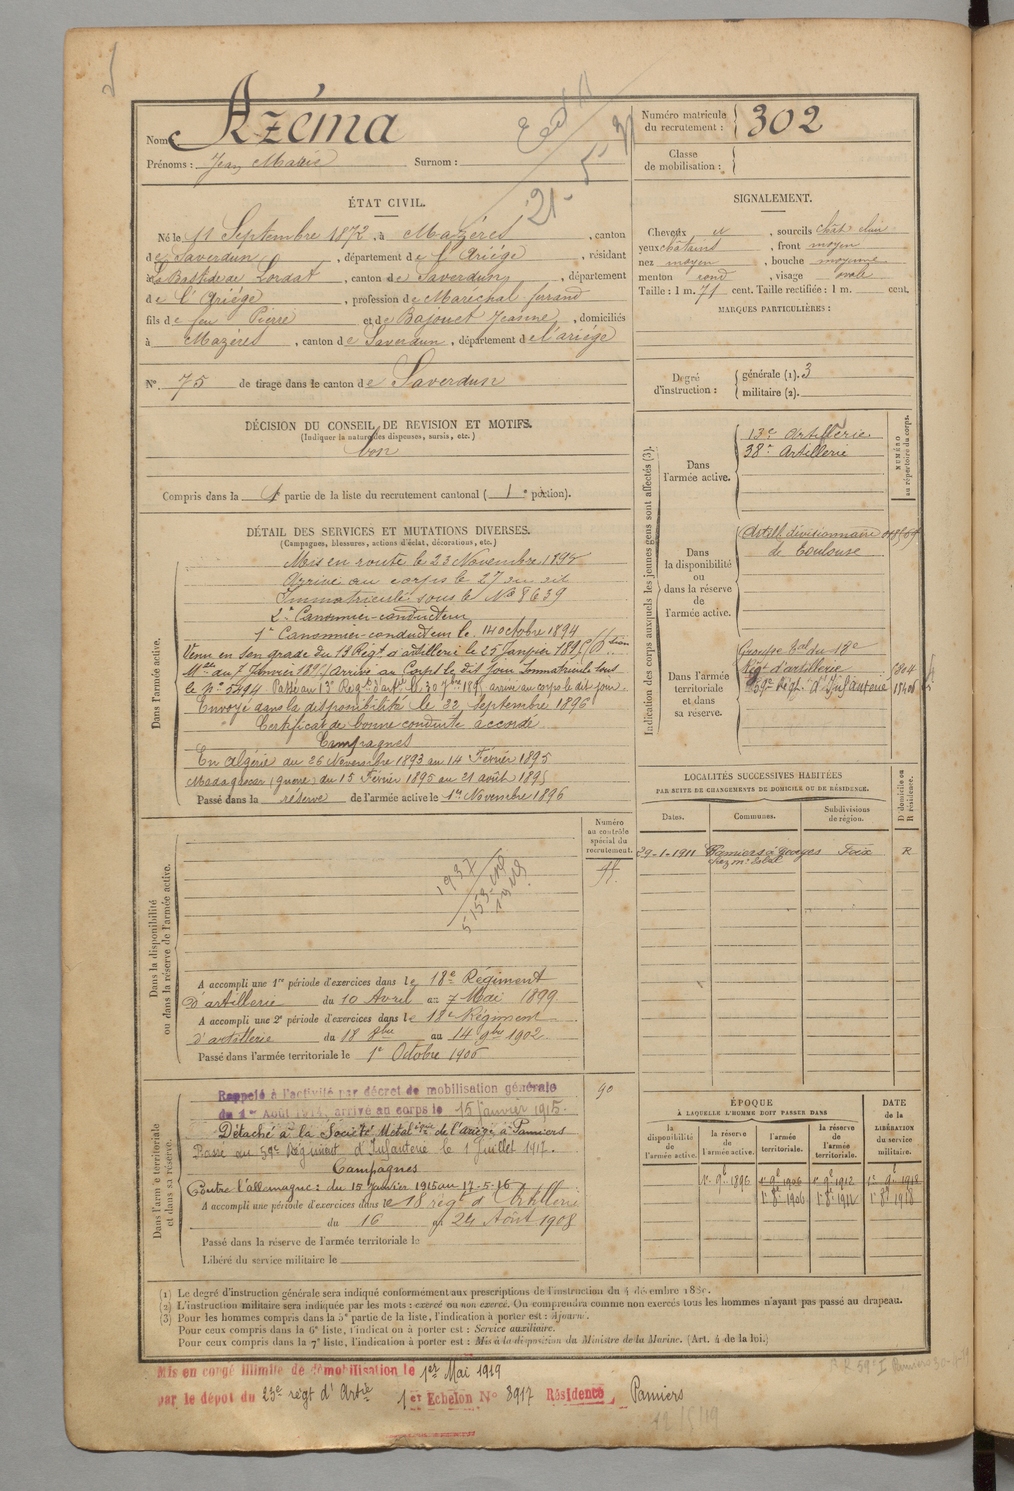 Nom : Azéma
Prénoms : Jean Marie Surnom :
Numéro matricule du recrutement : 302
Classe de mobilisation :
21-5
ÉTAT CIVIL.
Né le 11 Septembre 1872, à Mazères, canton
de Saverdun, département de l'Ariége, résidant
à La Bastide de Lordat, canton de Saverdun, département
de l'Ariége, profession de Maréchal ferrand
fils de feu Pierre et de Bajouet Jeanne, domiciliés
à Mazères, canton de Saverdun, département de l'ariége
No. 75 de tirage dans le canton de Saverdun
SIGNALEMENT.
Cheveux et, sourcils chât clair
yeux châtains, front moyen
nez moyen, bouche moyenne
menton rond, visage ovale
Taille : 1 m. 71 cent. Taille rectifiée : 1 m. cent.
MARQUES PARTICULIÈRES :
Degré d'instruction : générale (1). 3
militaire (2).
DÉCISION DU CONSEIL DE REVISION ET MOTIFS.
(Indiquer la nature des dispenses, sursis, etc.)
bon
Compris dans la 1e partie de la liste du recrutement cantonal ( 1e portion).
DÉTAIL DES SERVICES ET MUTATIONS DIVERSES.
(Campagnes, blessures, actions d'éclat, décorations, etc.)
Dans l'armée active.
Mis en route le 23 Novembre 1893
Arrivé au corps le 27 du dit
Immatriculé sous le No 8639
2e Canonnier-conducteur
1er Canonnier-conducteur le 14 octobre 1894
Venu en son grade du 19 Régt d'artillerie le 25 Janvier 1895
Mtelle du 7 Janvier 1895 Arrivé au Corps le dit jour Immatriculé sous
le No 5494 Passé au 13e Régt d'artie le 30 7bre 1895 arrivé au corps le dit jour
Envoyé dans la disponibilité le 22 Septembre 1896
Certificat de bonne conduite accordé
Campagnes
En Algérie du 26 Novembre 1893 au 14 Février 1895
Madagascar (guerre) du 15 Février 1895 au 21 août 1895
Passé dans la réserve de l'armée active le 1er Novembre 1896
Indication des corps auxquels les jeunes gens sont affectés (3).
NUMÉRO au répertoire du corps.
Dans l'armée active.
13e Artillerie
38e Artillerie
Dans la disponibilité ou dans la réserve de l'armée active.
Artillie divisionnaire
de Toulouse
Dans l'armée territoriale et dans sa réserve.
Groupe tal du 18e
Régt d'artillerie
59e Régt d'Infanterie
LOCALITÉS SUCCESSIVES HABITÉES
PAR SUITE DE CHANGEMENTS DE DOMICILE OU DE RÉSIDENCE.
Dates. Communes. Subdivisions de région. D domicile ou R résidence.
29-1-1911 Pamiers Foix R
Numéro au contrôle spécial du recrutement.
Dans la disponibilité ou dans la réserve de l'armée active.
1937
5153
A accompli une 1re période d'exercices dans le 18e Régiment
d'artillerie du 10 Avril au 7 Mai 1899
A accompli une 2e période d'exercices dans le 18e Régiment
d'artillerie du 18 8bre au 14 9bre 1902
Passé dans l'armée territoriale le 1er Octobre 1906
Dans l'armée territoriale et dans sa réserve.
90
Rappelé à l'activité par décret de mobilisation générale
du 1er Août 1914, arrivé au corps le 15 Janvier 1915.
Détaché à la Société Métalque de l'ariège à Pamiers
Passé au 59e Régiment d'Infanterie le 1 Juillet 1917.
Campagnes
Contre l'allemagne : du 15 janvier 1915 au 17-5-16
A accompli une période d'exercices dans le 18 régt d'Artillerie
du 16 au 24 Août 1908
Passé dans la réserve de l'armée territoriale le
Libéré du service militaire le
ÉPOQUE
À LAQUELLE L'HOMME DOIT PASSER DANS
DATE de la LIBÉRATION du service militaire.
la disponibilité de l'armée active. la réserve de l'armée active. l'armée territoriale. la réserve de l'armée territoriale.
1er 9bre 1896 1er 9bre 1906 1er 9bre 1912 1er 9bre 1918
1er 8bre 1906 1er 8bre 1912 1er 8bre 1918
(1) Le degré d'instruction générale sera indiqué conformément aux prescriptions de l'instruction du 4 décembre 1889.
(2) L'instruction militaire sera indiquée par les mots : exercé ou non exercé. On comprendra comme non exercés tous les hommes n'ayant pas passé au drapeau.
(3) Pour les hommes compris dans la 5e partie de la liste, l'indication à porter est : Ajourné.
Pour ceux compris dans la 6e liste, l'indication à porter est : Service auxiliaire.
Pour ceux compris dans la 7e liste, l'indication à porter est : Mis à la disposition du Ministre de la Marine. (Art. 4 de la loi.)
Mis en congé illimité de démobilisation le 1er Mai 1919
par le dépôt du 23e régt d'Artie 1er Echelon No 3917 Résidence Pamiers
12/5/19